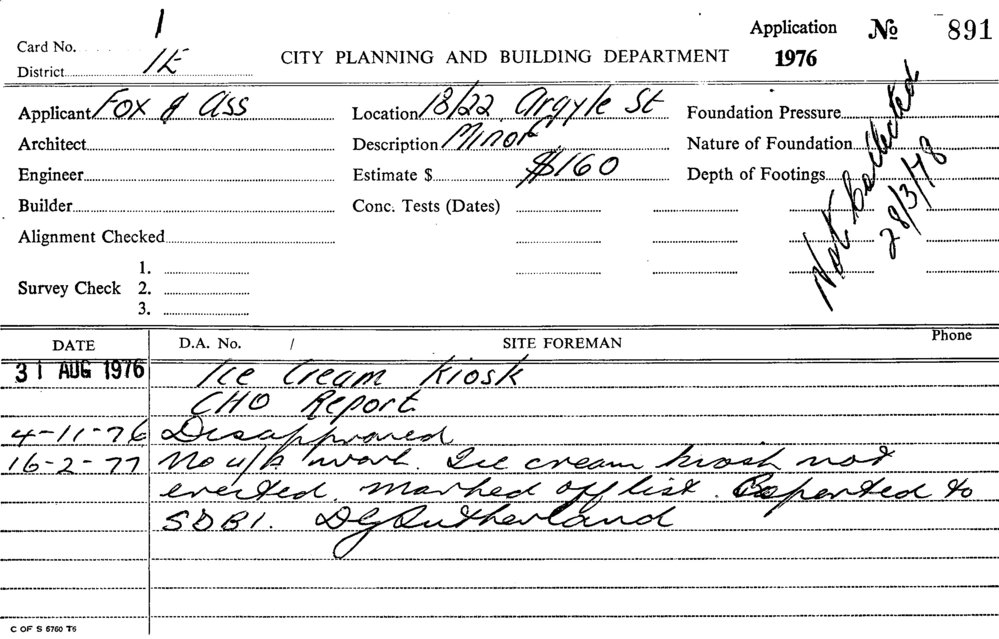 Card No. 1
District 1E
CITY PLANNING AND BUILDING DEPARTMENT
Application No 891
1976
Applicant Fox & Ass
Location 18/22 Argyle St
Foundation Pressure
Architect
Description Minor
Nature of Foundation
Engineer
Estimate $ $160
Depth of Footings
Builder
Conc. Tests (Dates)
Not Collected
28/3/78
Alignment Checked
Survey Check 1.
2.
3.
DATE D.A. No. / SITE FOREMAN Phone
31 AUG 1976 Ice Cream Kiosk
CHO Report.
4-11-76 Disapproved
16-2-77 No u/a work. Ice cream kiosk not
erected. Marked off list. Reported to
SDBI. DG Sutherland
C OF S 6760 T6